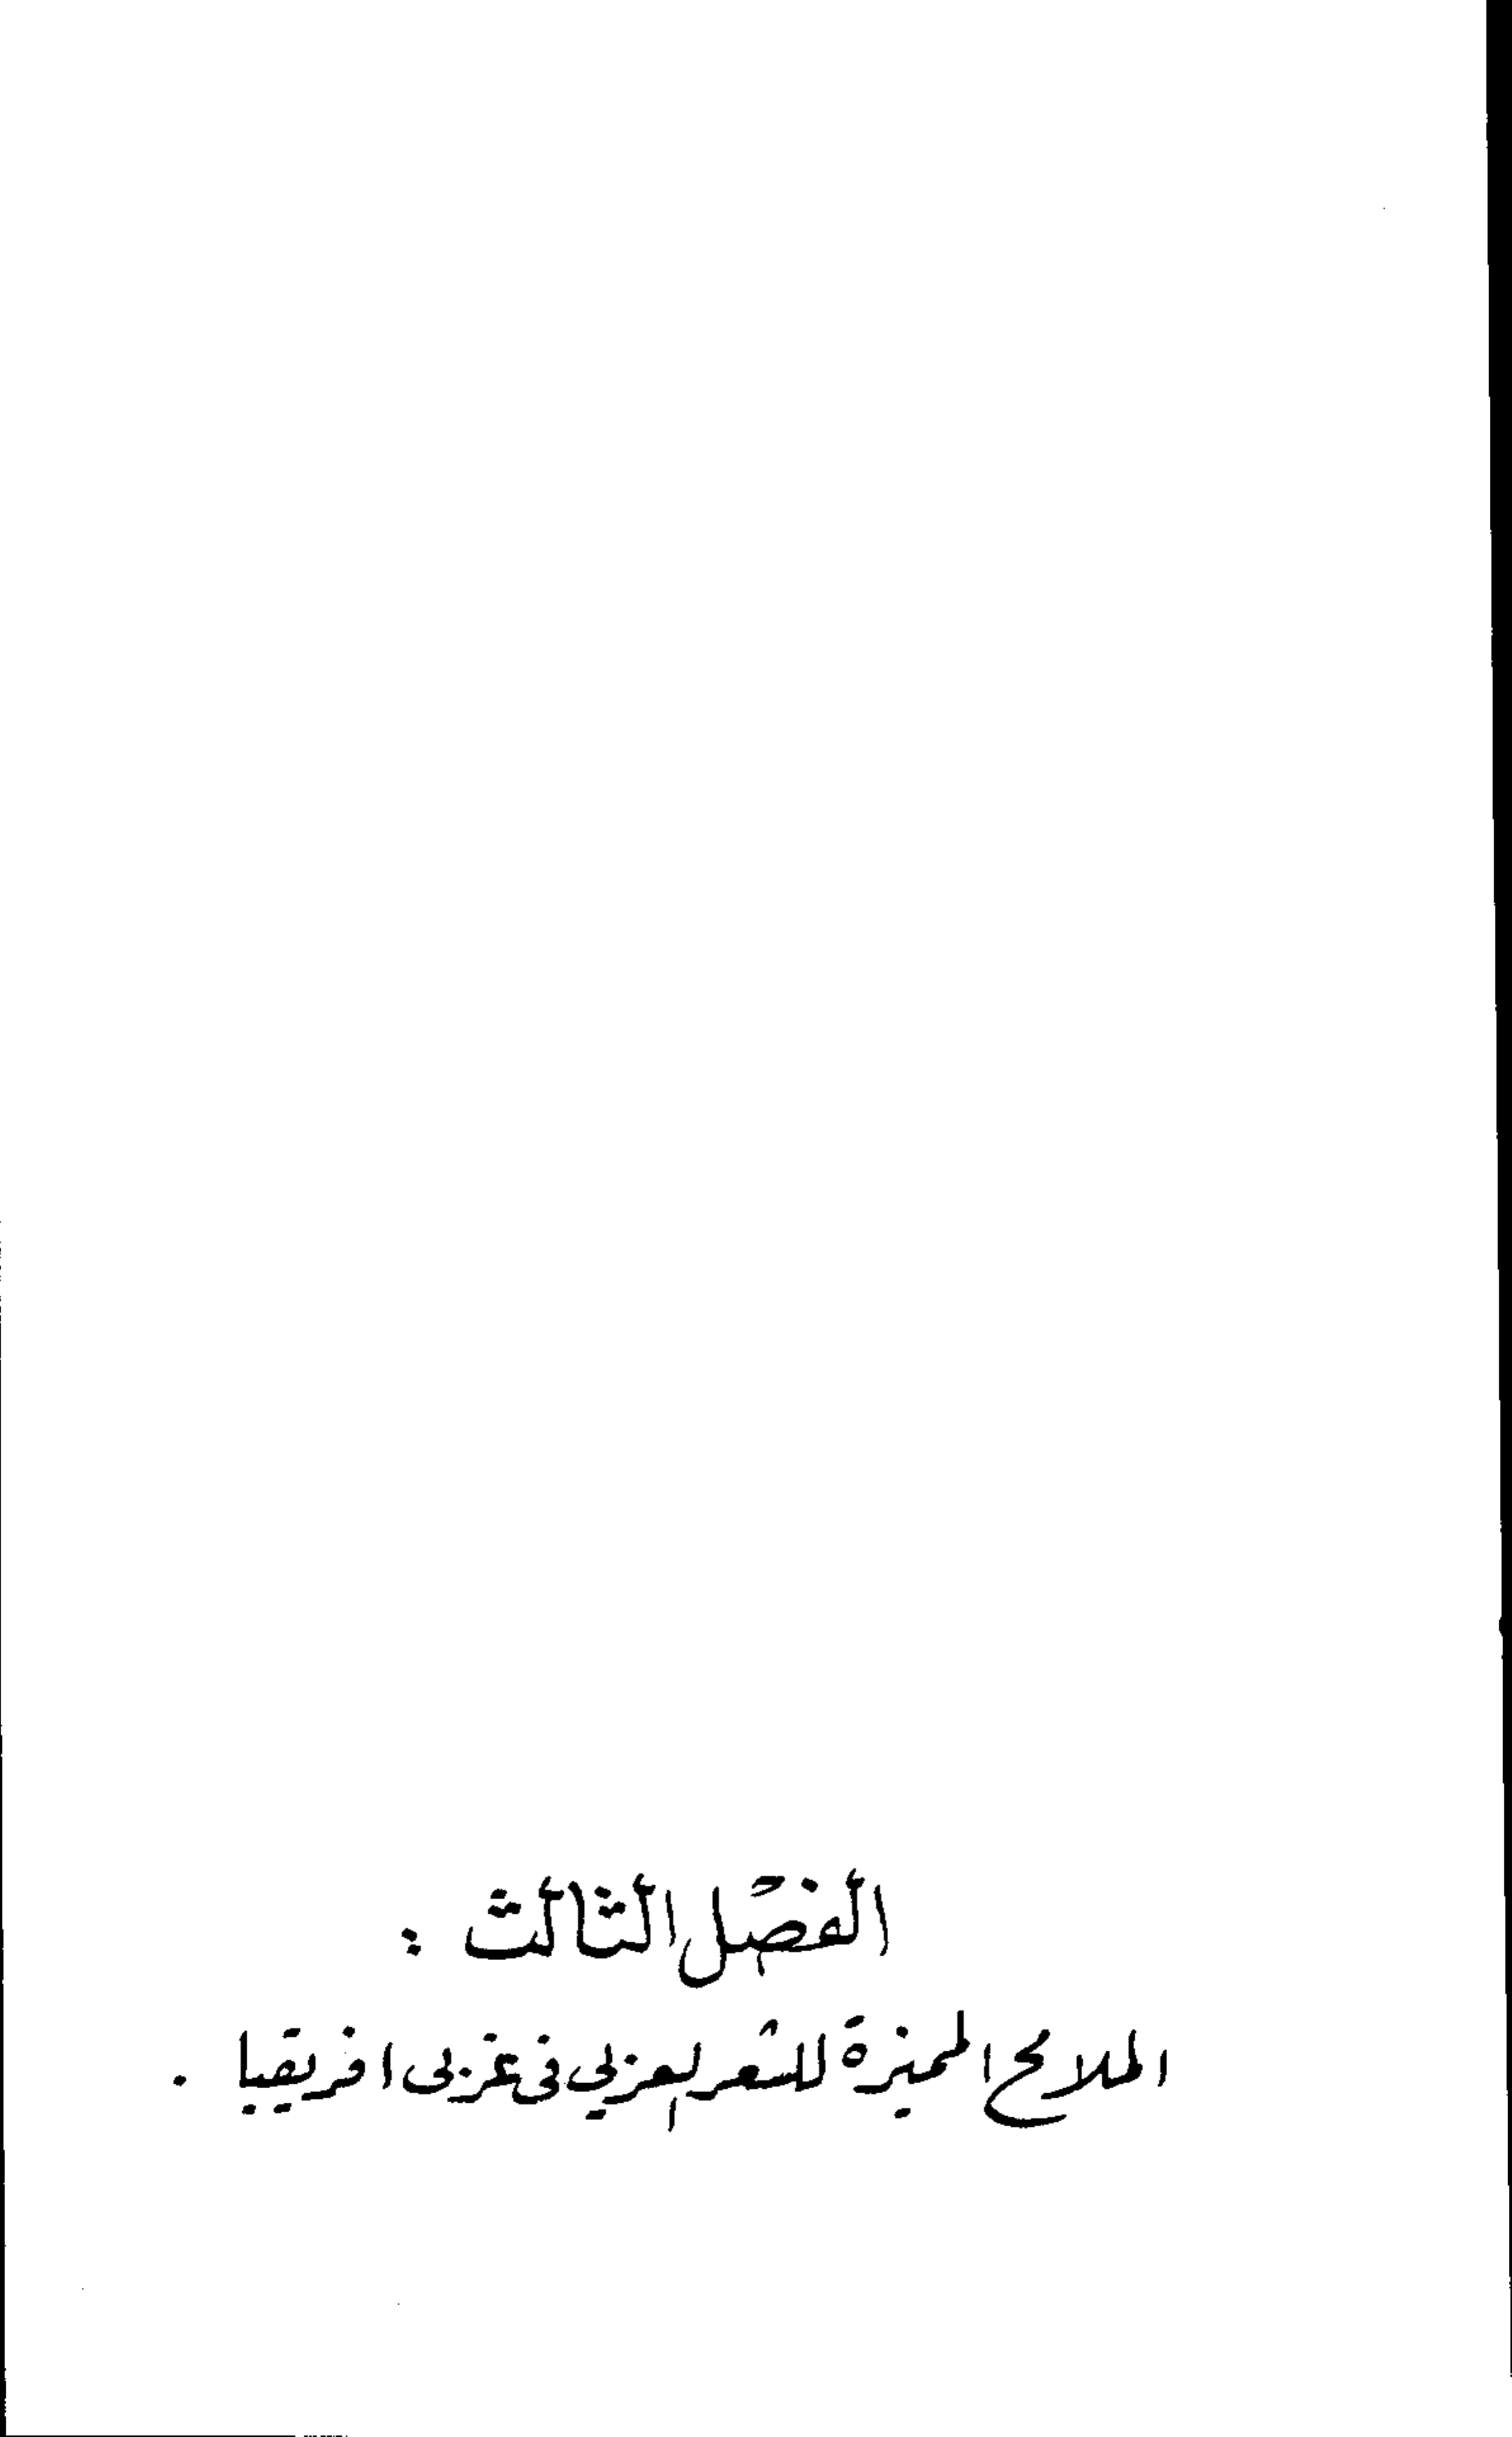 الفصل الثالث :
الملامح المميزة للشعر العربي في غربي افريقيا .